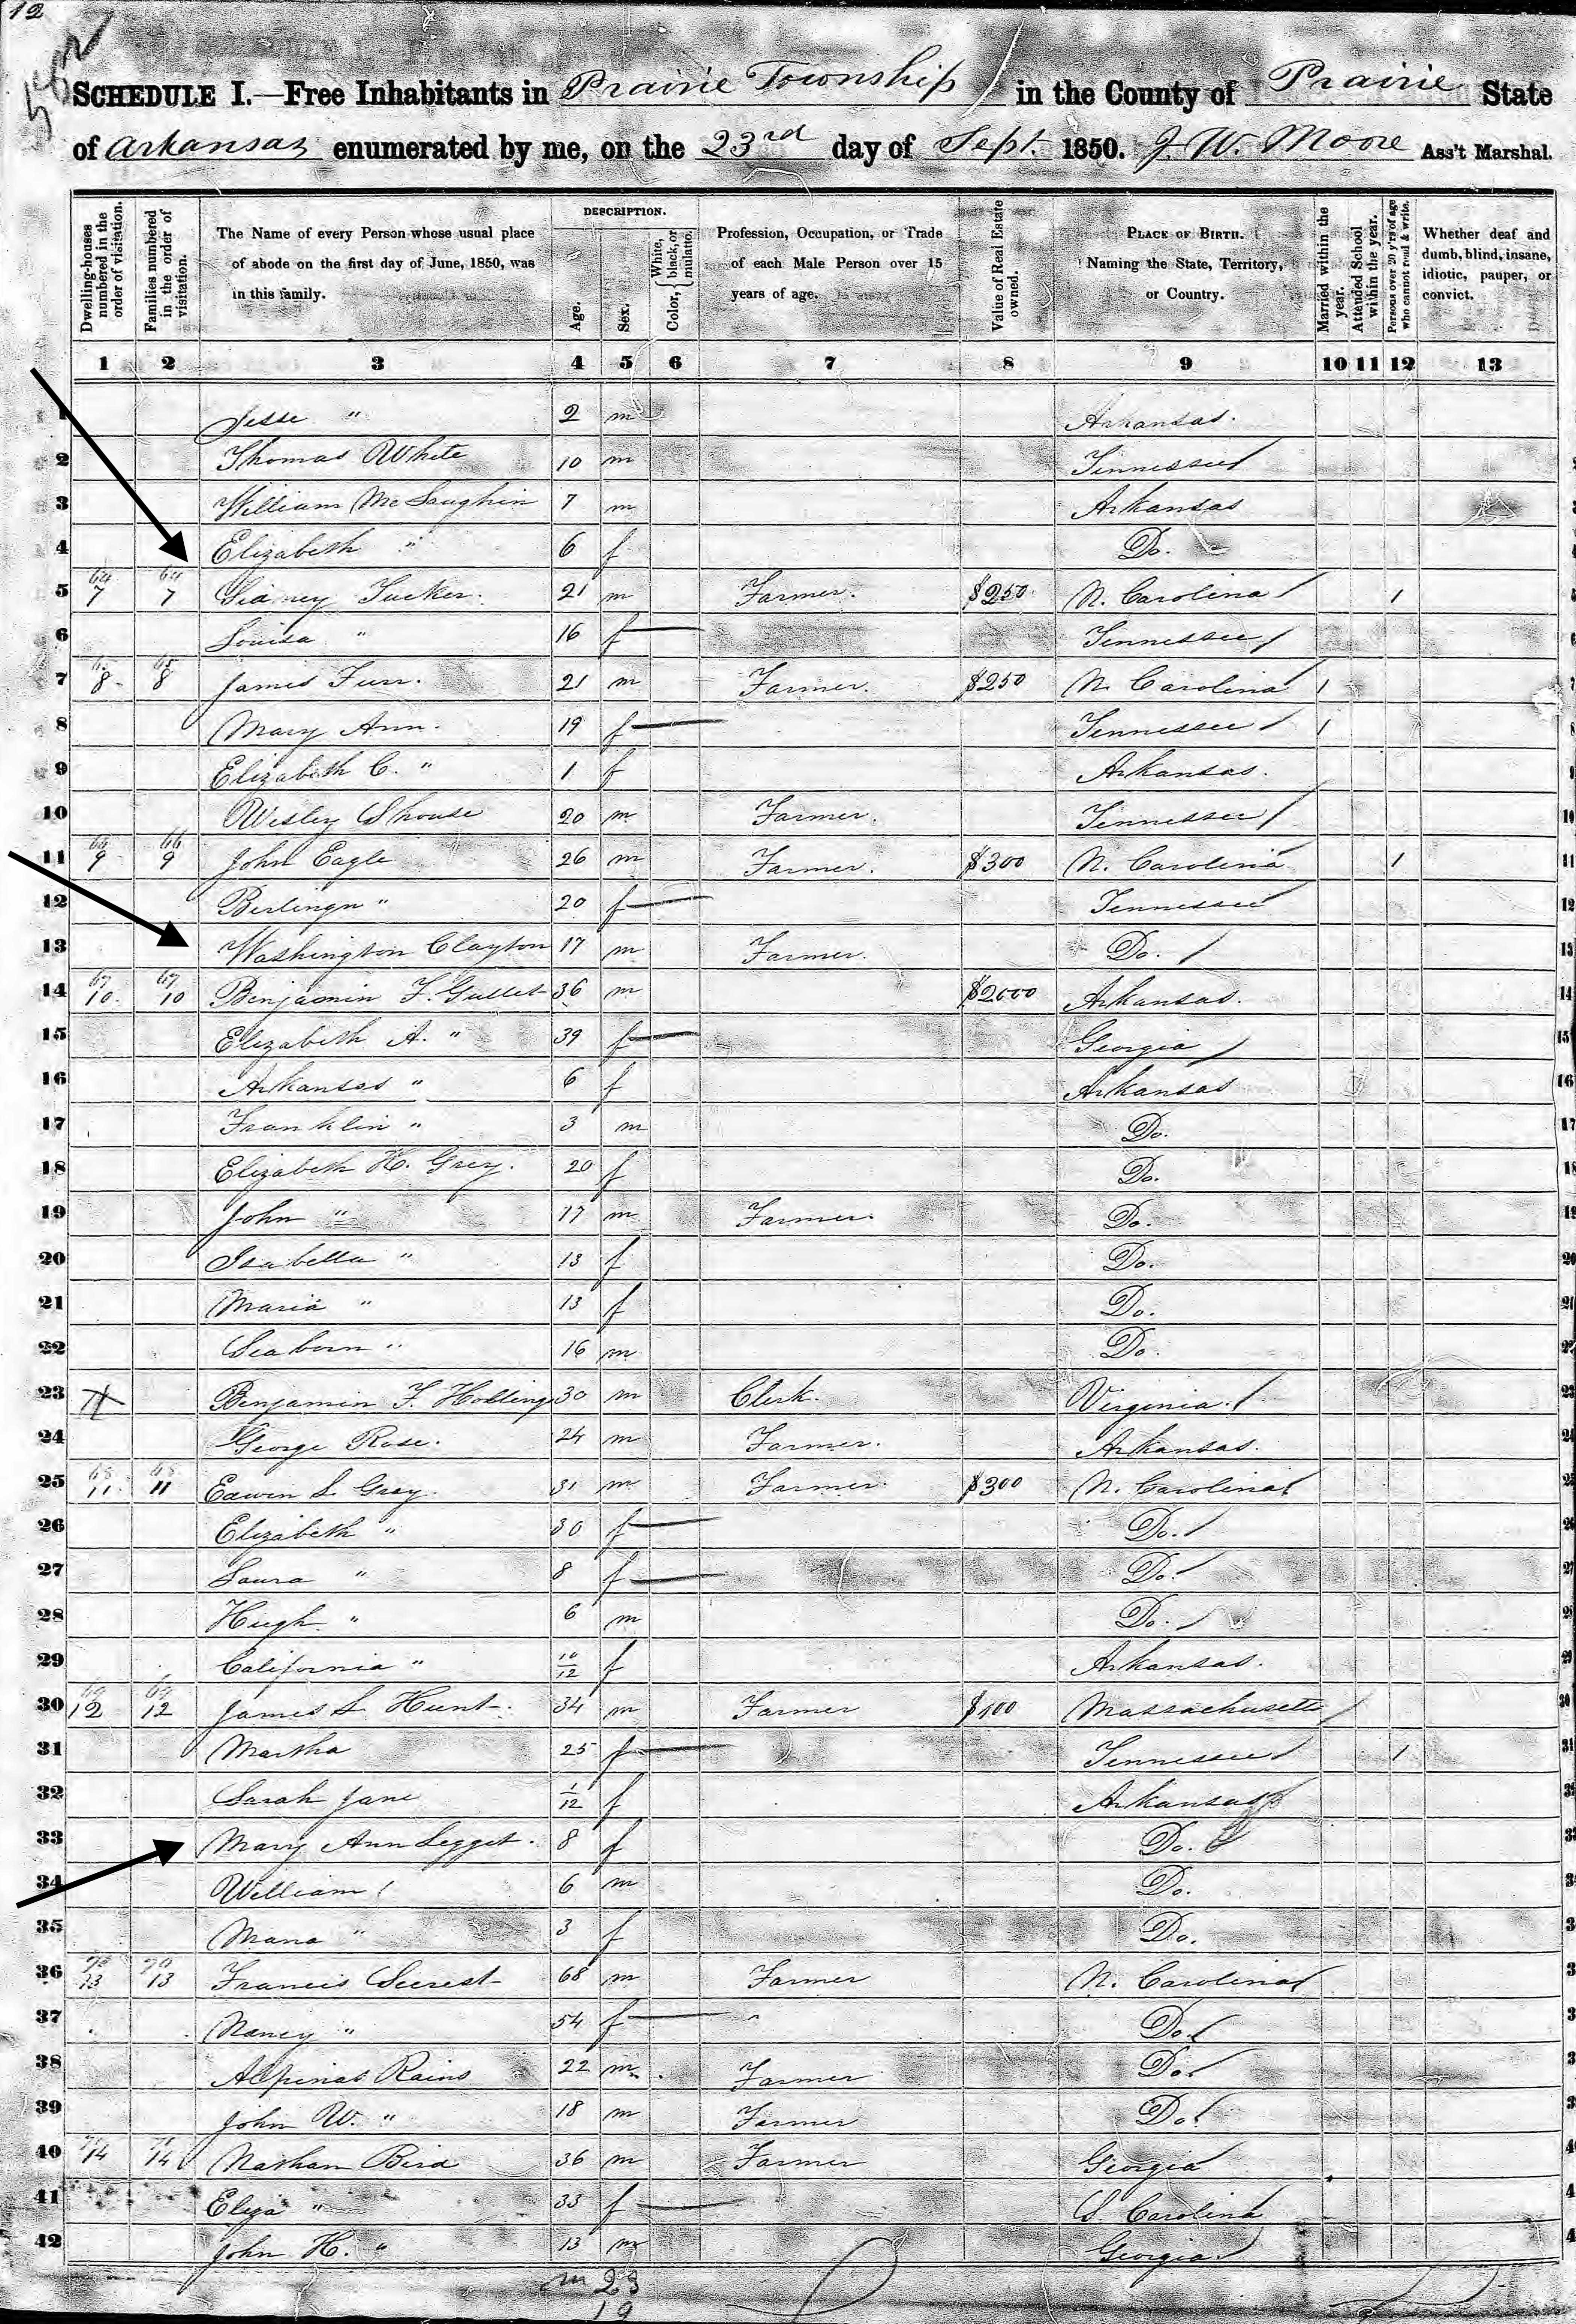 12
SCHEDULE I.—Free Inhabitants in Prairie Township in the County of Prairie State
of Arkansas enumerated by me, on the 23rd day of Sept. 1850. J. W. Moore Ass't Marshal.
Dwelling-houses numbered in the order of visitation.
Families numbered in the order of visitation.
The Name of every Person whose usual place of abode on the first day of June, 1850, was in this family.
DESCRIPTION.
Age.
Sex.
Color, White, black, or mulatto.
Profession, Occupation, or Trade of each Male Person over 15 years of age.
Value of Real Estate owned.
PLACE OF BIRTH. Naming the State, Territory, or Country.
Married within the year.
Attended School within the year.
Persons over 20 y'rs of age who cannot read & write.
Whether deaf and dumb, blind, insane, idiotic, pauper, or convict.
1 2 3 4 5 6 7 8 9 10 11 12 13
1 Jesse " 2 m Arkansas.
2 Thomas White 10 m Tennessee
3 William McLaughin 7 m Arkansas
4 Elizabeth " 6 f Do.
5 64 7 64 7 Sidney Tucker. 21 m Farmer. $250 N. Carolina 1
6 Louisa " 16 f Tennessee
7 65 8 65 8 James Furr. 21 m Farmer. $250 N. Carolina 1
8 Mary Ann. 19 f Tennessee 1
9 Elizabeth C. " 1 f Arkansas.
10 Wesley Shouse 20 m Farmer. Tennessee
11 66 9 66 9 John Eagle 26 m Farmer. $300 N. Carolina 1
12 20 f Tennessee
13 Washington Clayton 17 m Farmer. Do.
14 67 10. 67 10 Benjamin F. Gullet 36 m $2000 Arkansas.
15 Elizabeth A. " 39 f Georgia
16 Arkansas " 6 f Arkansas
17 Franklin " 3 m Do.
18 Elizabeth H. Grey. 20 f Do.
19 John " 17 m Farmer. Do.
20 Isabella " 13 f Do.
21 Maria " 13 f Do.
22 Seaborn " 16 m Do.
23 Benjamin F. Hollings 30 m Clerk. Virginia.
24 George Rose. 24 m Farmer. Arkansas.
25 68 11. 68 11 Edwin L Gray. 31 m Farmer. $300 N. Carolina
26 Elizabeth " 30 f Do.
27 Laura " 8 f Do.
28 Hugh " 6 m Do.
29 California " 10/12 f Arkansas.
30 69 12 69 12 James L Hunt. 34 m Farmer $100 Massachusetts
31 Martha 25 f Tennessee 1
32 Sarah Jane 1/12 f Arkansas
33 Mary Ann Legget. 8 f Do.
34 William 6 m Do.
35 Mana " 3 f Do.
36 70 13 70 13 Francis Secrest 68 m Farmer N. Carolina
37 Nancy " 54 f Do.
38 Alpinas Rains 22 m Farmer Do.
39 John W. " 18 m Farmer Do.
40 71 14 71 14 Nathan Bird 36 m Farmer Georgia
41 Eliza " 33 f S. Carolina
42 John H. " 13 m Georgia
m 23
19